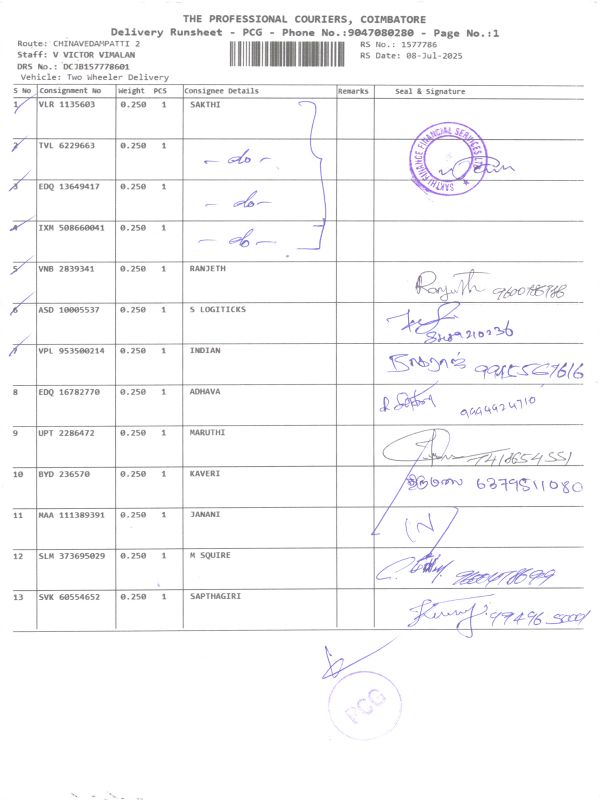 THE PROFESSIONAL COURIERS, COIMBATORE
Delivery Runsheet - PCG - Phone No.:9047080280 - Page No.:1
Route: CHINAVEDAMPATTI 2 RS No.: 1577786
Staff: V VICTOR VIMALAN RS Date: 08-Jul-2025
DRS No.: DCJB157778601
Vehicle: Two Wheeler Delivery
S No Consignment No Weight PCS Consignee Details Remarks Seal & Signature
1 VLR 1135603 0.250 1 SAKTHI
2 TVL 6229663 0.250 1 - do -
SAKTHI FINANCE FINANCIAL SERVICES LTD
3 EDQ 13649417 0.250 1 - do -
4 IXM 508660041 0.250 1 - do -
5 VNB 2839341 0.250 1 RANJETH Ranjeth
6 ASD 10005537 0.250 1 S LOGITICKS
7 VPL 953500214 0.250 1 INDIAN
8 EDQ 16782770 0.250 1 ADHAVA 9444924710
9 UPT 2286472 0.250 1 MARUTHI 7418654551
10 BYD 236570 0.250 1 KAVERI 6379511080
11 MAA 111389391 0.250 1 JANANI IN
12 SLM 373695029 0.250 1 M SQUIRE
13 SVK 60554652 0.250 1 SAPTHAGIRI
PCG